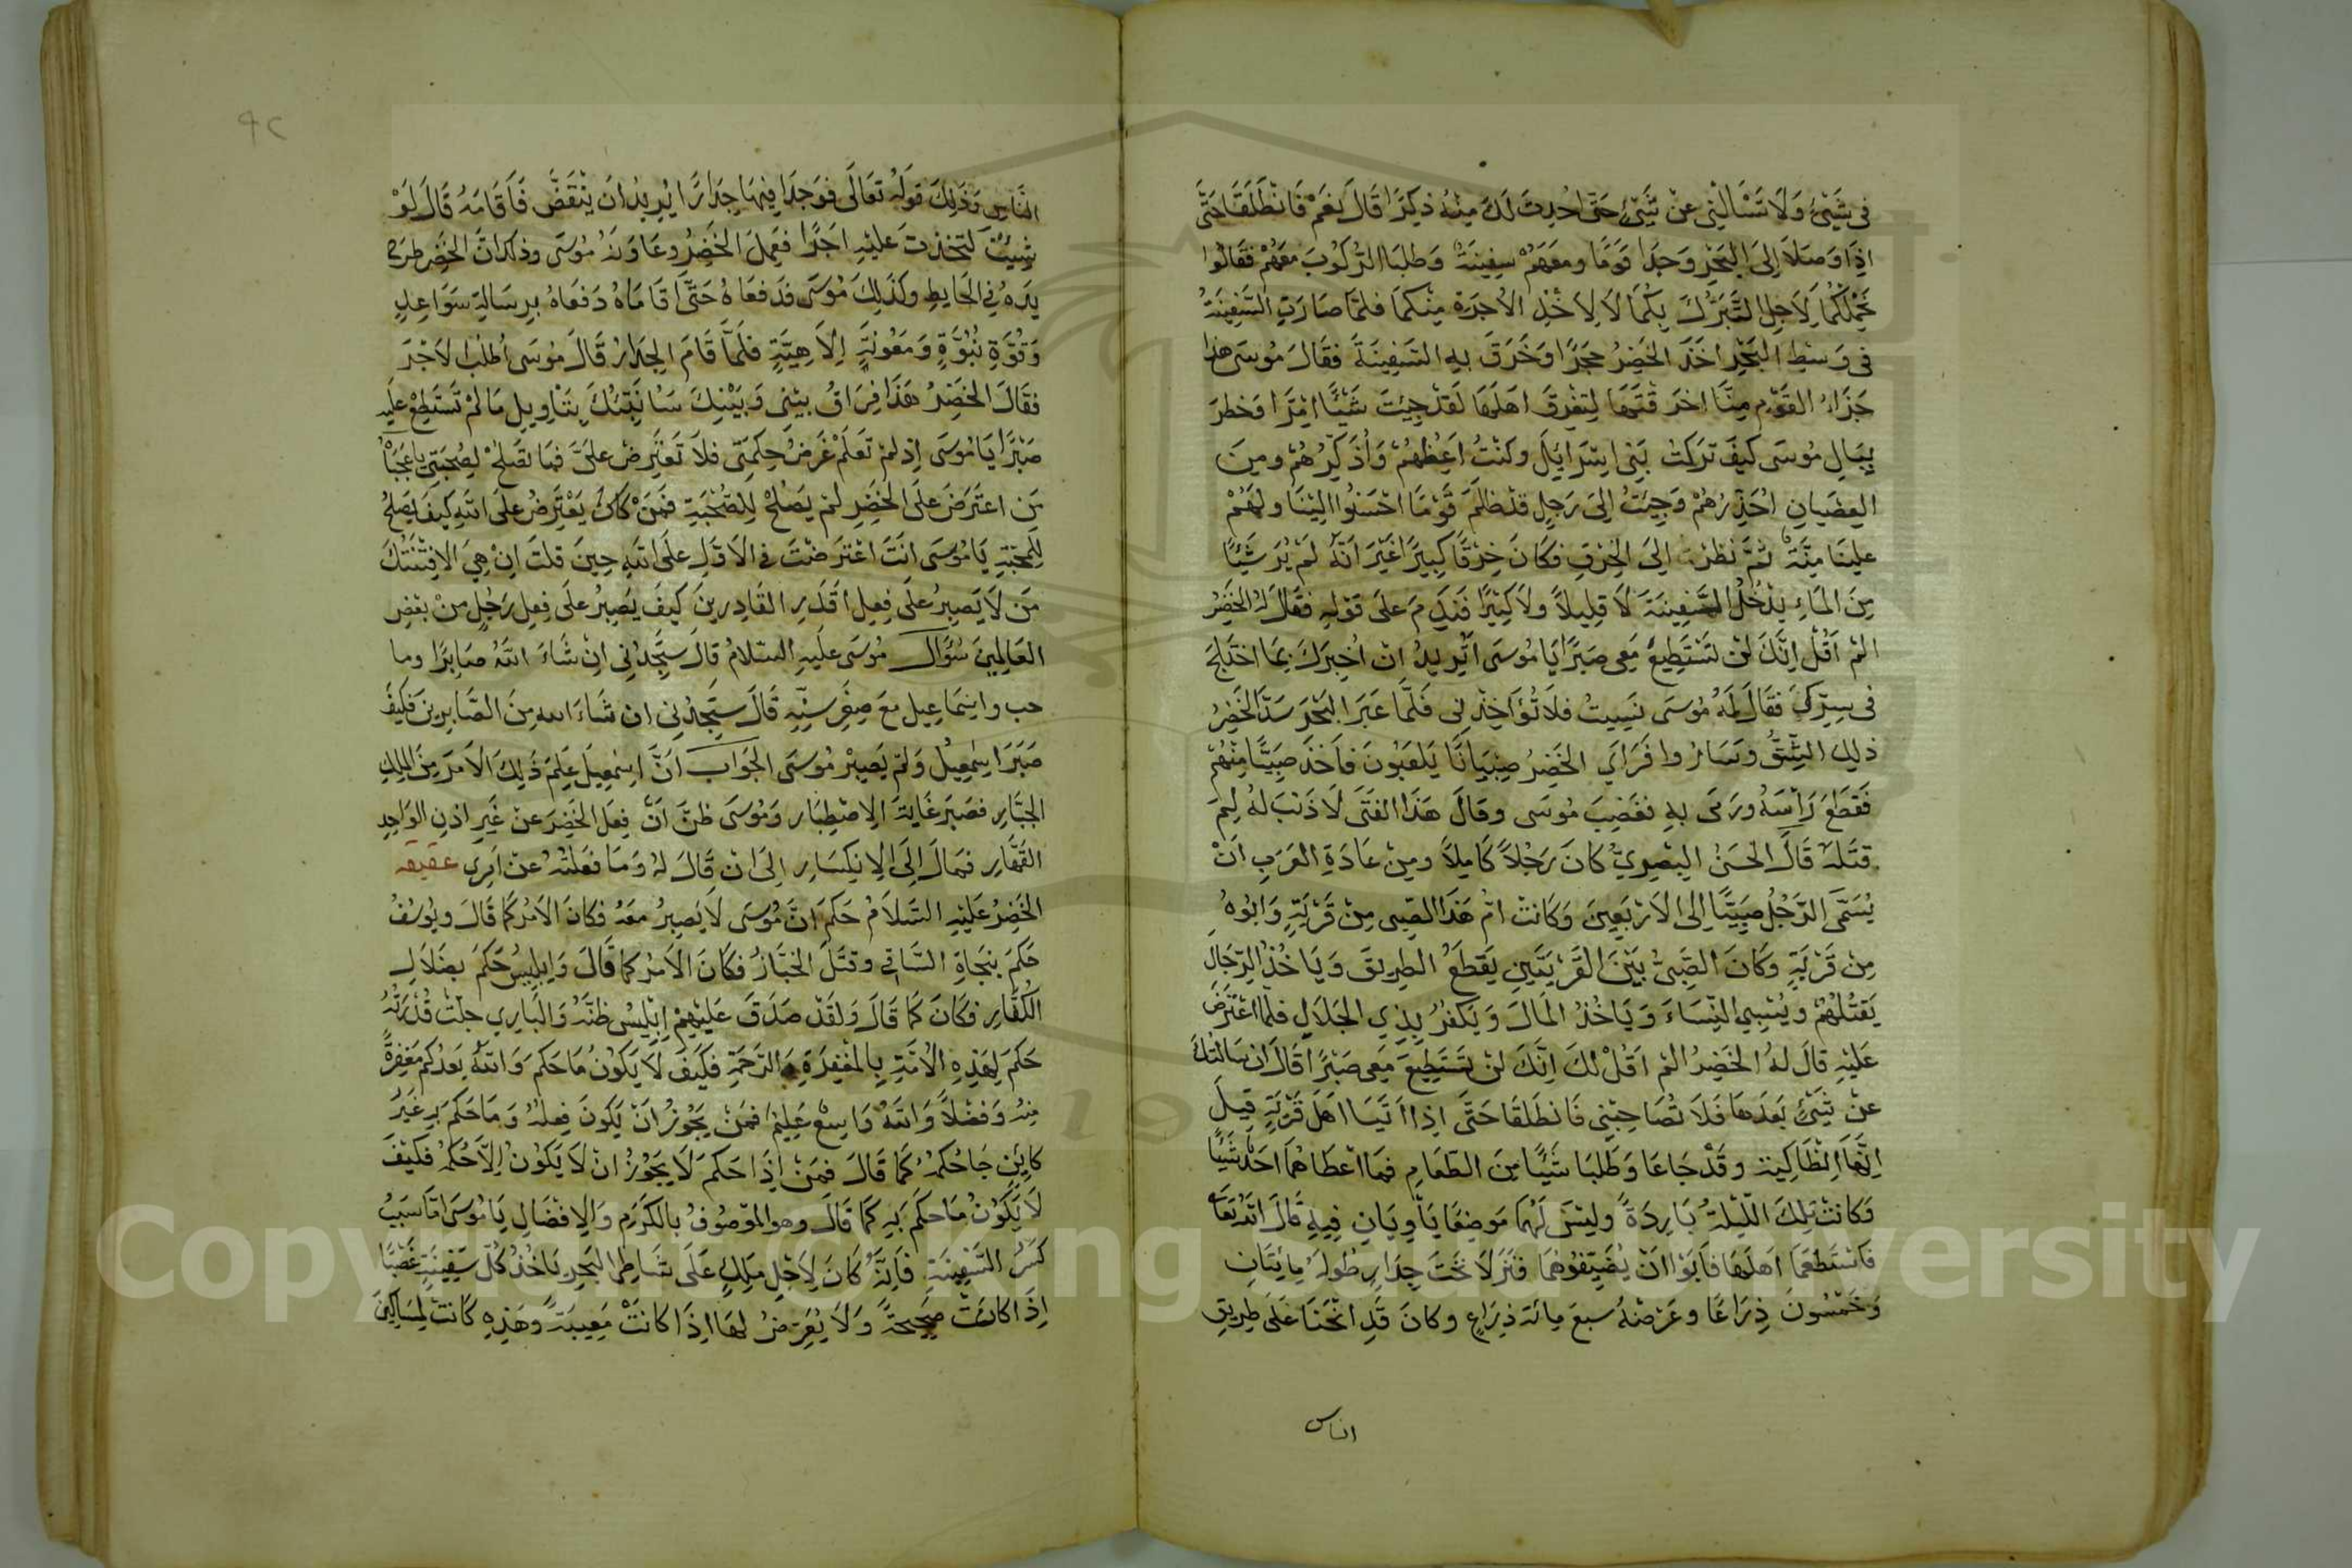 في شَيْئٍ وَلَا تَسْأَلْنِي عَنْ شَيْئٍ حَتَّى اُحْدِثَ لَكَ مِنْهُ ذِكْرًا قَالَ نَعَمْ فَانْطَلَقَا حَتَّى
اِذَا وَصَلَا اِلَى الْبَحْرِ وَجَدَا قَوْمًا ومَعَهُمْ سَفِينَةٌ وَطَلَبَا الرُّكُوبَ مَعَهُمْ فَقَالُوا
نَحْمِلُكُمَا لِاَجْلِ التَّبَرُّكِ بِكُمَا لَا لِاَخْذِ الْاُجْرَةِ مِنْكُمَا فَلَمَّا صَارَتِ السَّفِينَةُ
فى وَسْطِ الْبَحْرِ اَخَذَ الْخَضِرُ حَجَرًا وَخَرَقَ بِهِ السَّفِينَةَ فَقَالَ مُوسَى هذا
جَزَاءُ الْقَوْمِ مِنَّا اَخَرَقْتَهَا لِتُغْرِقَ اَهْلَهَا لَقَدْ جِيْتَ شَيْئًا اِمْرًا وَخَطَرَ
بِبَالِ مُوسَى كَيْفَ تَرَكْتُ بَنِى اِسْرَايِلَ وكُنْتُ اَعِظُهُمْ وَاُذَكِّرُهُمْ ومِنَ
الْعِصْيَانِ اُحَذِّرُهُمْ وَجِيْتُ اِلَى رَجُلٍ قَدْ ظَلَمَ قَوْمًا اَحْسَنُوا اِلَيْنَا ولَهُمْ
عَلَيْنَا مِنَّةٌ ثُمَّ نَظَرَ اِلَى الْخَرْقِ فكَانَ خَرْقًا كَبِيرًا غَيْرَ اَنَّهُ لَمْ يُرَ شَيْئًا
مِنَ الْمَاءِ يَدْخُلُ السَّفِينَةَ لَا قَلِيلًا ولَا كَثِيرًا فَنَدِمَ عَلَى قَوْلِهِ فَقَالَ لَهُ الْخَضِرُ
اَلَمْ اَقُلْ اِنَّكَ لَنْ تَسْتَطِيعَ مَعِى صَبْرًا يَا مُوسَى اَتُرِيدُ اَنْ اُخْبِرَكَ بِمَا اخْتَلَجَ
فى سِرِّكَ فَقَالَ لَهُ مُوسَى نَسِيتُ فلَا تُؤَاخِذْنى فَلَمَّا عَبَرَا الْبَحْرَ سَدَّ الْخَضِرُ
ذٰلِكَ الشِّقَّ وَسَارُوا فَرَاَى الْخَضِرُ صِبْيَانًا يَلْعَبُونَ فَاَخَذَ صَبِيًّا مِنْهُمْ
فَقَطَعَ رَاْسَهُ ورَمَى بِهِ فَغَضِبَ مُوسَى وقَالَ هَذَا الْفَتَى لَا ذَنْبَ لَهُ لِمَ
قَتَلْتَهُ قَالَ الْحَسَنُ الْبَصْرِيُّ كَانَ رَجُلًا كَامِلًا ومِنْ عَادَةِ الْعَرَبِ اَنْ
يُسَمَّى الرَّجُلُ صَبِيًّا اِلى الْاَرْبَعِينَ وَكَانَتْ اُمُّ هَذَا الصَّبِى مِنْ قَرْيَةٍ وَاَبُوهُ
مِنْ قَرْيَةٍ وكَانَ الصَّبِىُّ بَيْنَ الْقَرْيَتَيْنِ يَقْطَعُ الطَّرِيقَ وَيَاخُذُ الرِّجَالَ
يَقْتُلُهُمْ ويُسْبِى النِّسَاءَ وَيَاْخُذُ الْمَالَ وَيَكْفُرُ بِذِي الْجَلَالِ فَلَمَّا اعْتَرَضَ
عَلَيْهِ قَالَ لَهُ الْخَضِرُ اَلَمْ اَقُلْ لَكَ اِنَّكَ لَنْ تَسْتَطِيعَ مَعِى صَبْرًا قَالَ اِنْ سَاَلْتُكَ
عَنْ شَيْئٍ بَعْدَهَا فَلَا تُصَاحِبْنِى فَانْطَلَقَا حَتَّى اِذَا اَتَيَا اَهْلَ قَرْيَةٍ قِيلَ
اِنَّهَا اَنْطَاكِيَة وقَدْ جَاعَا وَطَلَبَا شَيْئًا مِنَ الطَّعَامِ فَمَا اَعْطَاهُمَا اَحَدٌ شَيْئًا
وَكَانَتْ تِلْكَ اللَّيْلَةُ بَارِدَةً وليْسَ لَهُمَا مَوْضِعًا يَأْوِيَانِ فِيهِ قَالَ اللهُ تَعَالَى
فَاسْتَطْعَمَا اَهْلَهَا فَاَبَوْا اَنْ يُضَيِّفُوهُمَا فَنَزَلَا تَحْتَ جِدَارٍ طُولُهُ مِايَتَانِ
وَخَمْسُونَ ذِرَاعًا وعَرْضُهُ سبعَ مِائَة ذِرَاعٍ وكانَ قَدِ انْحَنَا عَلَى طَرِيقِ
الناس
النَّاسِ وَذَلِكَ قَوْلُهُ تَعَالَى فَوَجَدَا فِيهَا جِدَارًا يُرِيدُ اَنْ يَنْقَضَّ فَاَقَامَهُ قَالَ لَوْ
شِيْتَ لَتَّخَذْتَ عَلَيْهِ اَجْرًا فَعَمِلَ الْخَضِرُ وعَاوَنَهُ مُوسَى وذكر اَنَّ الْخَضِرَ طرح
يَدَهُ فِي الْحَايِطِ وكَذَلِكَ مُوسَى فَدَفَعَاهُ حَتَّى اَقَامَاهُ دَفَعَاهُ بِرِسَالَةِ سَوَاعِدٍ
وَقُوَّةِ نُبُوَّةٍ وَمَعُونَةٍ اِلَاهِيَّةٍ فَلَمَّا قَامَ الْجِدَارُ قَالَ مُوسَى اُطْلُبِ الْاَجْرَ
فَقَالَ الْخَضِرُ هَذَا فِرَاقُ بَيْنِى وَبَيْنِكَ سَاُنَبِّئُكَ بِتَاْوِيلِ مَا لَمْ تَسْتَطِعْ عَلَيه
صَبْرًا يَا مُوسَى اِذْ لَمْ تَعْلَمْ غَرَضُ حِكْمَتِى فلَا تَعْتَرِضْ عَلَىَّ فَمَا تَصْلُحْ لِصُحْبَتِى يا عَجَبًا
مَنِ اعْتَرَضَ عَلَى الْخَضِرِ لَمْ يَصْلُحْ لِلصُّحْبَةِ فَمَنْ كَانَ يَعْتَرِضُ عَلَى اللهِ كَيْفَ يَصْلُحُ
لِلْمَحَبَّةِ يَا مُوسَى اَنْتَ اعْتَرَضْتَ في الْاَوَّلِ عَلَى اللهِ حِينَ قُلْتَ اِنْ هِيَ اِلَّا فِتْنَتُكَ
مَنْ لَا يَصْبِرُ عَلَى فِعْلِ اَقْدَرِ الْقَادِرِينَ كَيْفَ يَصْبِرُ عَلَى فِعْلِ رَجُلٍ مِنْ بَعْضِ
الْعَالَمِينَ سُؤَالٌ مُوسَى عَلَيهِ السَّلَامُ قَالَ سَتَجِدُنِي اِنْ شَاءَ اللهُ صَابِرًا وما
صبر وَاِسْمَاعِيل مَعَ صِغَرِ سِنِّهِ قَالَ سَتَجِدُنِى ان شَاءَ الله مِنَ الصَّابِرِينَ فَكَيْفَ
صَبَرَ اِسْمٰعِيلُ وَلَمْ يَصْبِرْ مُوسَى الْجَوَابُ اَنَّ اِسْمٰعِيلَ عَلِمَ ذٰلِكَ الْاَمْرَ مِنَ الْمَلِكِ
الْجَبَّارِ فصَبَرَ غَايَةَ الْاِصْطِبَارِ وَمُوسَى ظَنَّ اَنَّ فِعْلَ الْخَضِرِ عَنْ غَيْرِ اِذْنِ الْوَاحِدِ
الْقَهَّارِ فَمَالَ اِلَى الْاِنْكِسَارِ اِلَى اَنْ قَالَ لَهُ وَمَا فَعَلْتُهُ عَنْ اَمْرِى عقيقه
الْخَضِرُ عَلَيْهِ السَّلَامُ حَكَمَ اَنَّ مُوسَى لَا يَصْبِرُ مَعَهُ فكَانَ الْاَمْرُ كَمَا قَالَ ويُوسُفُ
حَكَمَ بِنَجَاةِ السَّاقِي وقَتْلِ الْخَبَّازُ فكَانَ الْاَمْرُ كمَا قَالَ وَاِبْلِيسُ حَكَمَ بِضَلَالِ
الْكُفَّارِ فكَانَ كَمَا قَالَ وَلَقَدْ صَدَقَ عَلَيْهِمْ اِبْلِيسُ ظَنَّهُ وَالْبَارِي جَلَّتْ قُدْرَتُهُ
حَكَمَ لِهَذِهِ الْاُمَّةِ بِالْمَغْفِرَةِ وَالرَّحْمَةِ فَكَيْفَ لَا يَكُوْنُ مَا حَكَمَ وَاللهُ يَعِدُكُمْ مَغْفِرَةً
مِنْهُ وَفَضْلًا وَاللهُ وَاسِعٌ عَلِيْمٌ فَمَنْ يَجُوْزُ اَنْ يَكُونَ فِعْلُهُ وَمَا حَكَمَ بِهِ غَيْرُ
كَايِنٍ جَا حُكْمُهُ كَمَا قَالَ فَمَنْ اِذَا حَكَمَ لَا يَجُوْزُ اَنْ لَا يَكُوْنَ اِلَّا حُكْمُهُ فكَيْفَ
لَا يَكُوْنُ مَا حَكَمَ بِهِ كَمَا قَالَ وهوالموْصُوفُ بالْكَرَمِ وَالْاِفْضَالِ يَا مُوسَى اَمَّا سَبَبُ
كَسْرِ السَّفِينَةِ فَاِنَّهُ كَانَ لِاَجْلِ مَلِكٍ عَلَى شَاطِئِ الْبَحْرِ يَاخُذُ كُلَّ سَفِينَةٍ غَصْبًا
اِذَا كَانَتْ صَحِيحَةً وَلَا يُعْرَضُ لهَا اِذَا كَانَتْ مَعِيبَةً وهَذِهِ كَانَتْ لِمَسَاكِينَ